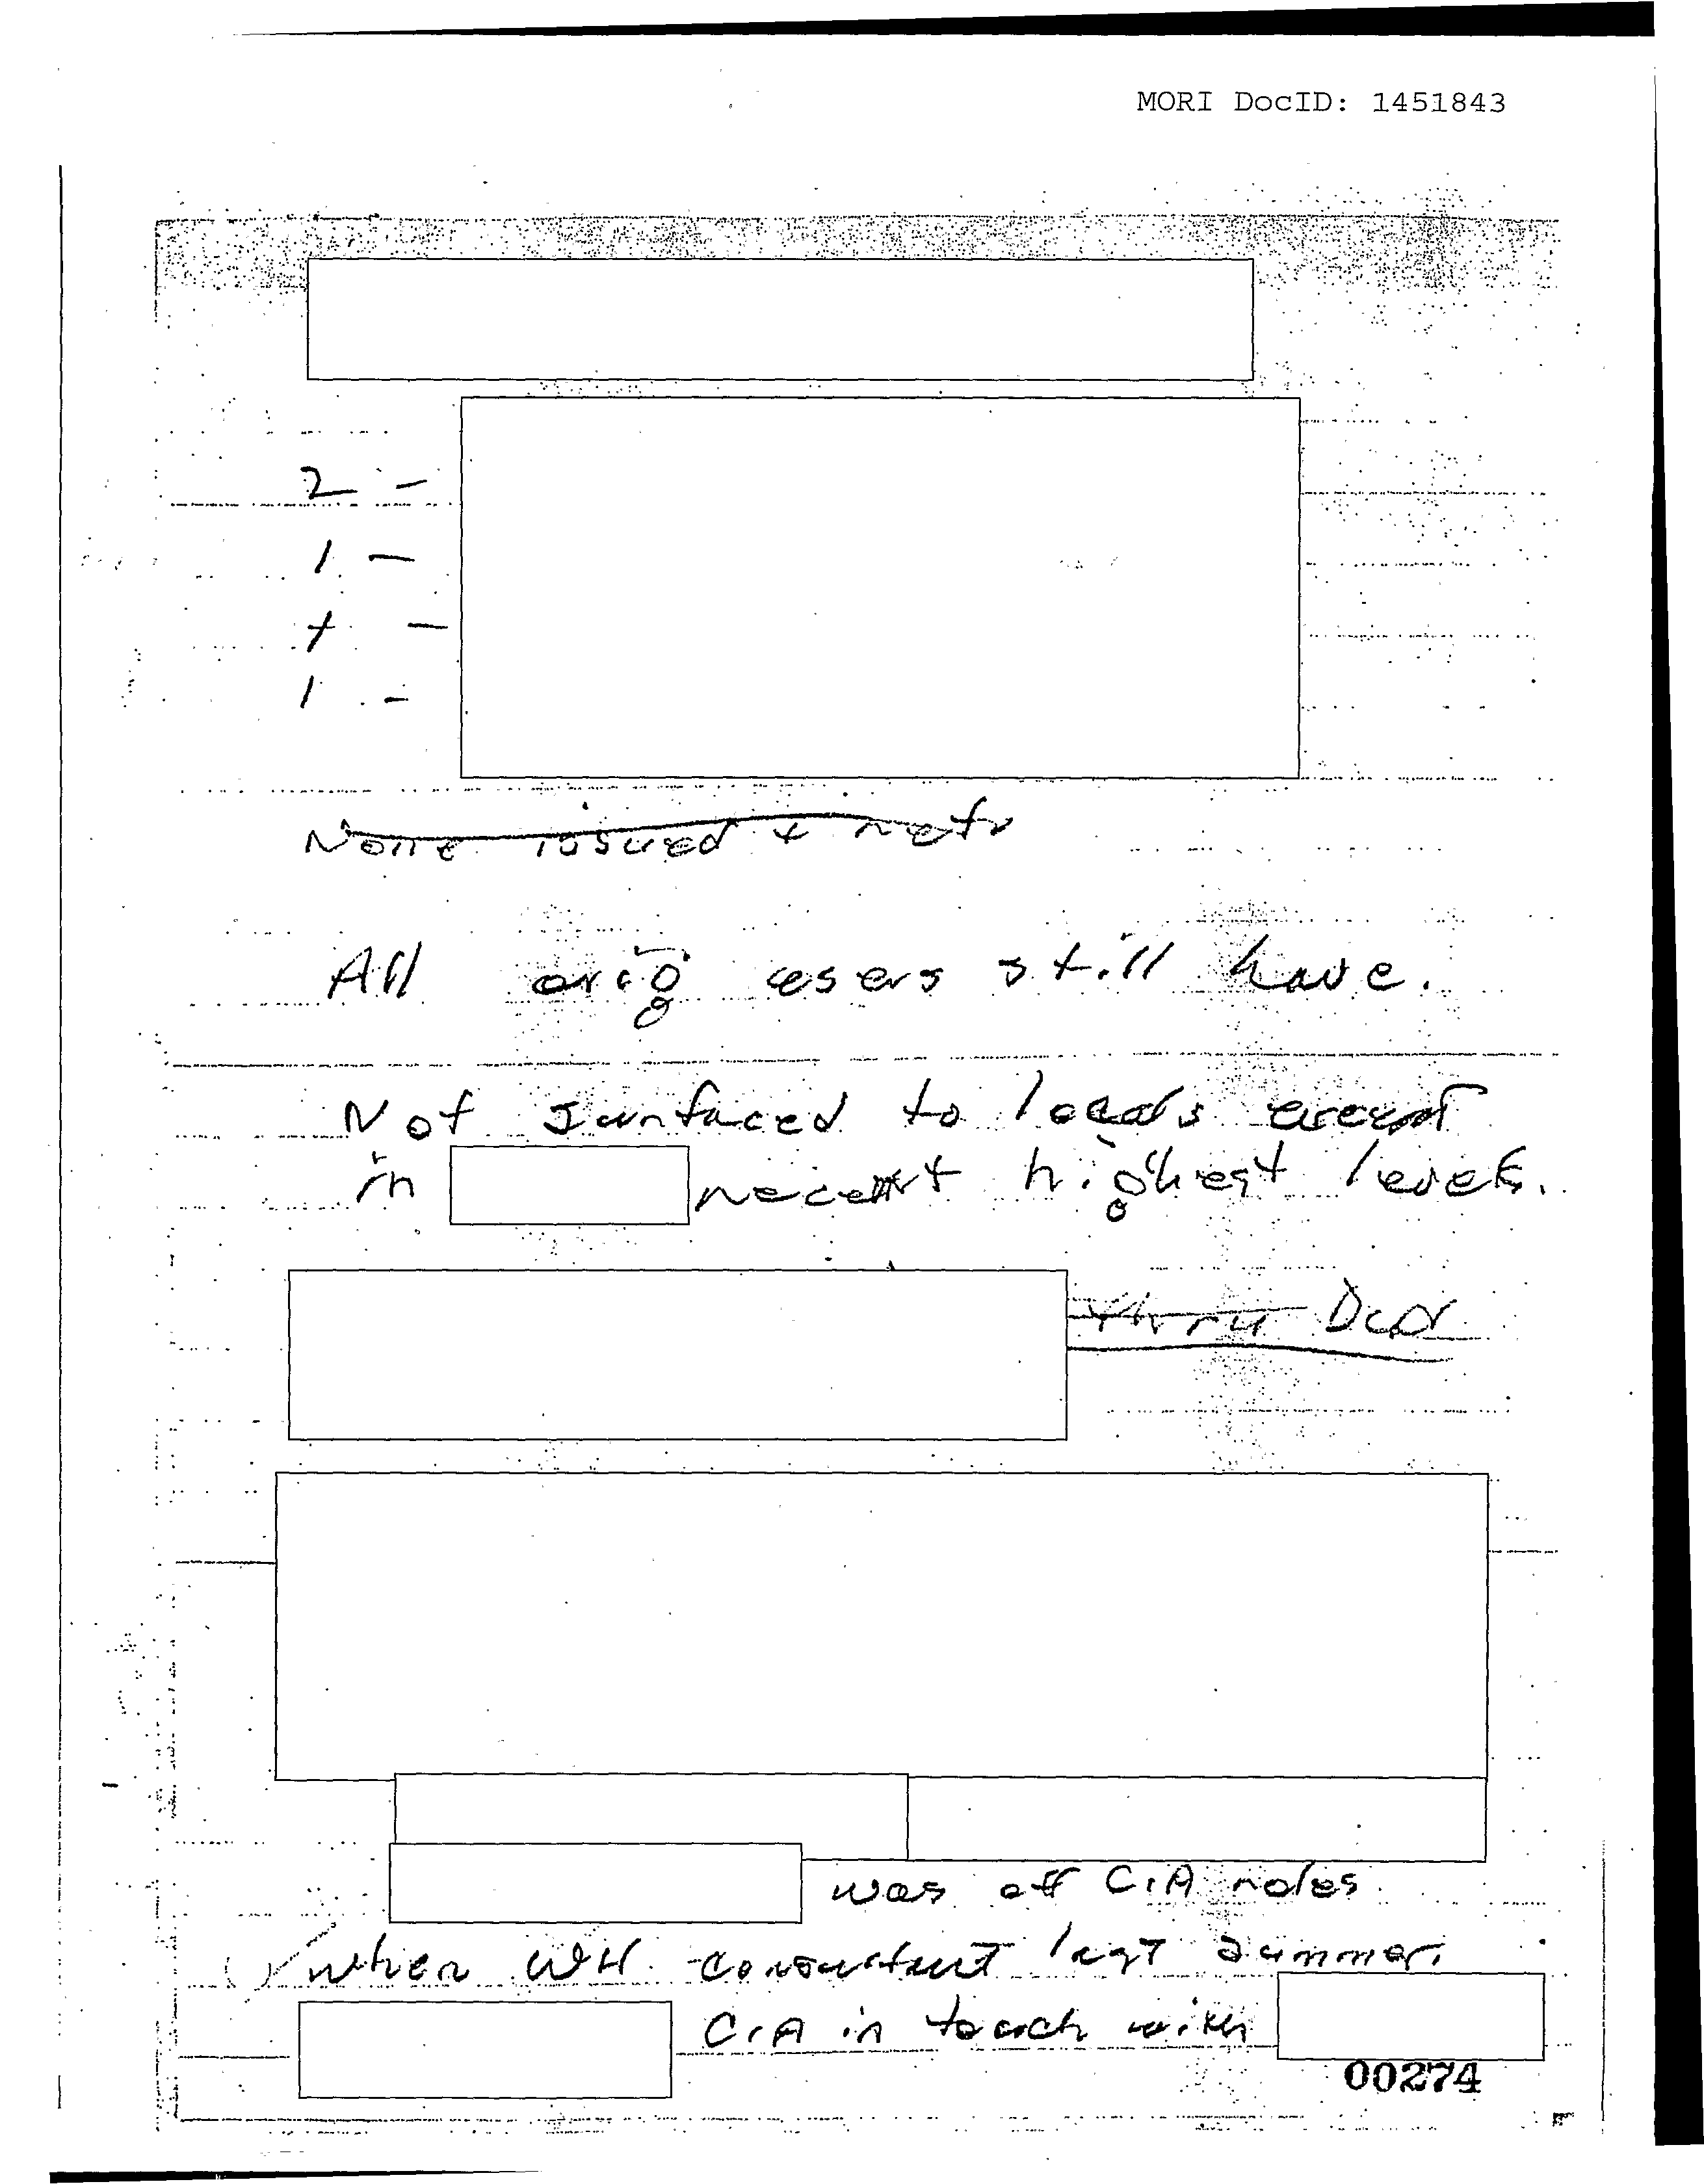 MORI DocID: 1451843
2 -
1 -
+ -
1 -
None issued +
All orig users still have.
Not surfaced to locals except
in highest levels.
thru
was off CIA roles
when WH consultant last summer.
CIA in touch with
00274